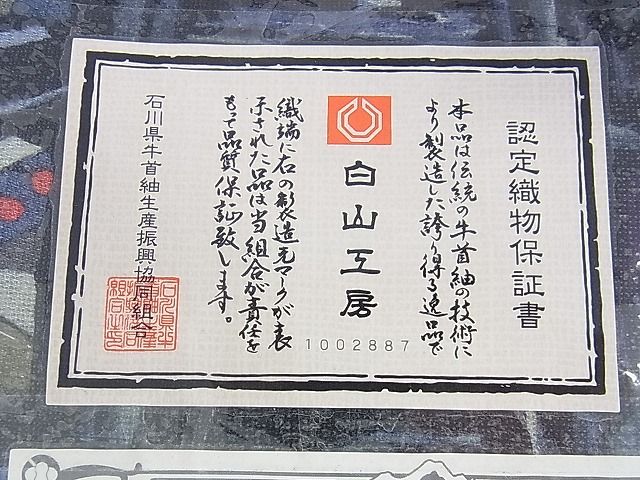 認定織物保証書
本品は伝統の牛首紬の技術に
より製造した誇り得る逸品で
白山工房
1002887
織端に右の製造元マークが表
示された品は当組合が責任を
もって品質保証致します。
石川県牛首紬生産振興協同組合